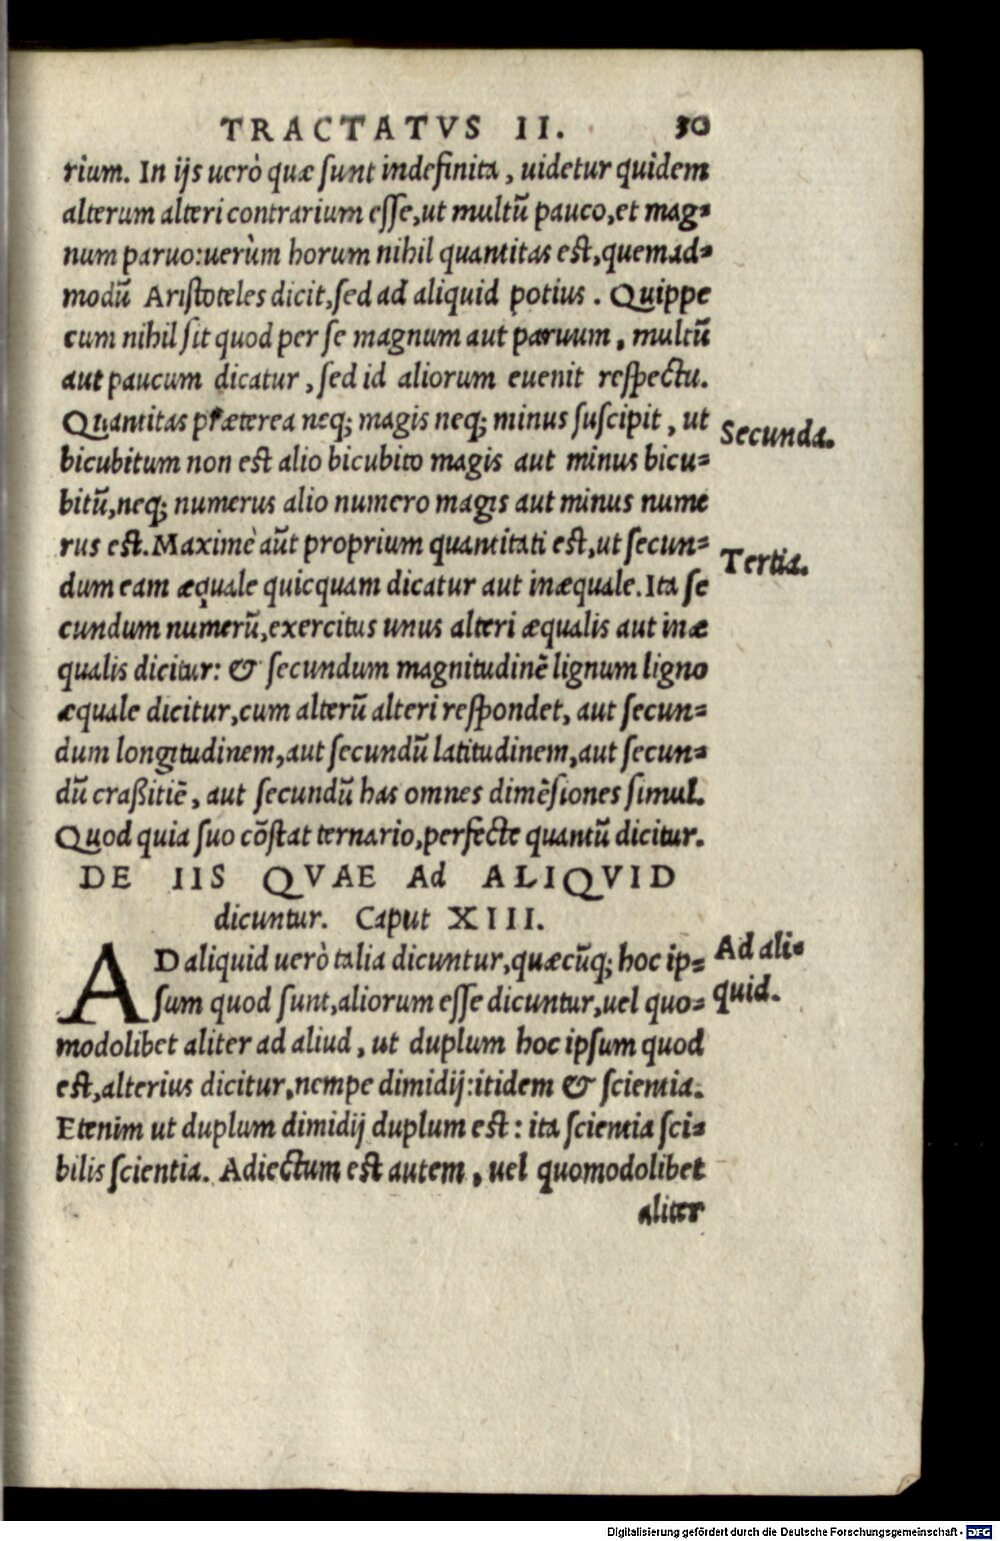 TRACTATVS II. 50
rium. In ijs uerò quæ sunt indefinita, uidetur quidem
alterum alteri contrarium esse, ut multũ pauco, et mag-
num paruo: uerùm horum nihil quantitas est, quemad-
modũ Aristoteles dicit, sed ad aliquid potius. Quippe
cum nihil sit quod per se magnum aut paruum, multũ
aut paucum dicatur, sed id aliorum euenit respectu.
Quantitas præterea neq; magis neq; minus suscipit, ut
Secunda.
bicubitum non est alio bicubito magis aut minus bicu-
bitũ, neq; numerus alio numero magis aut minus nume
rus est. Maximè aũt proprium quantitati est, ut secun-
Tertia.
dum eam æquale quicquam dicatur aut inæquale. Ita se
cundum numerũ, exercitus unus alteri æqualis aut inæ
qualis dicitur: & secundum magnitudinẽ lignum ligno
æquale dicitur, cum alterũ alteri respondet, aut secun-
dum longitudinem, aut secundũ latitudinem, aut secun-
dũ craßitiẽ, aut secundũ has omnes dimẽsiones simul.
Quod quia suo cõstat ternario, perfecte quantũ dicitur.
DE IIS QVAE Ad ALIQVID
dicuntur. Caput XIII.
AD aliquid uerò talia dicuntur, quæcũq; hoc ip-
Ad ali-
sum quod sunt, aliorum esse dicuntur, uel quo-
quid.
modolibet aliter ad aliud, ut duplum hoc ipsum quod
est, alterius dicitur, nempe dimidij: itidem & scientia.
Etenim ut duplum dimidij duplum est: ita scientia sci-
bilis scientia. Adiectum est autem, uel quomodolibet
aliter
Digitalisierung gefördert durch die Deutsche Forschungsgemeinschaft - DFG